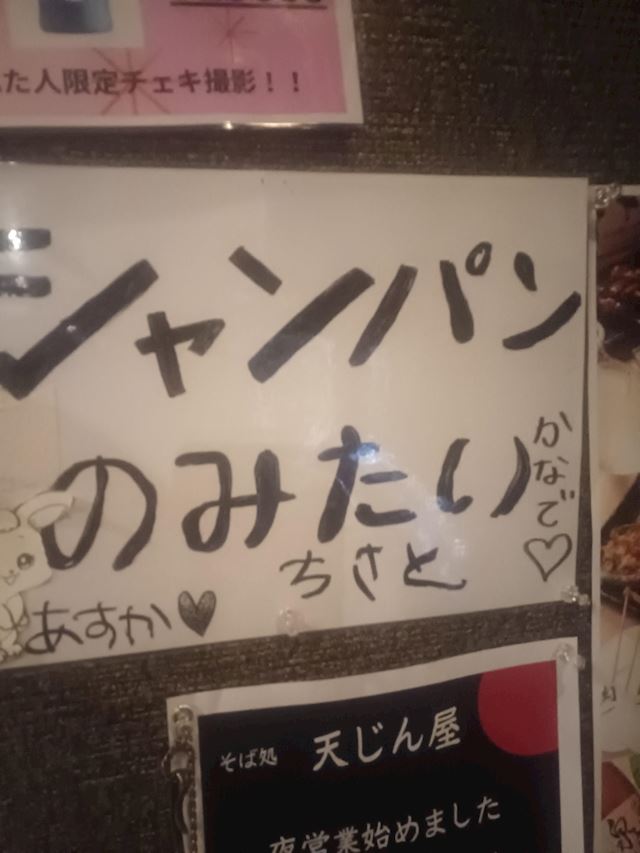 た人限定チェキ撮影！！
シャンパン
のみたい
かなで♡
ちさと
あすか♥
そば処 天じん屋
夜営業始めました